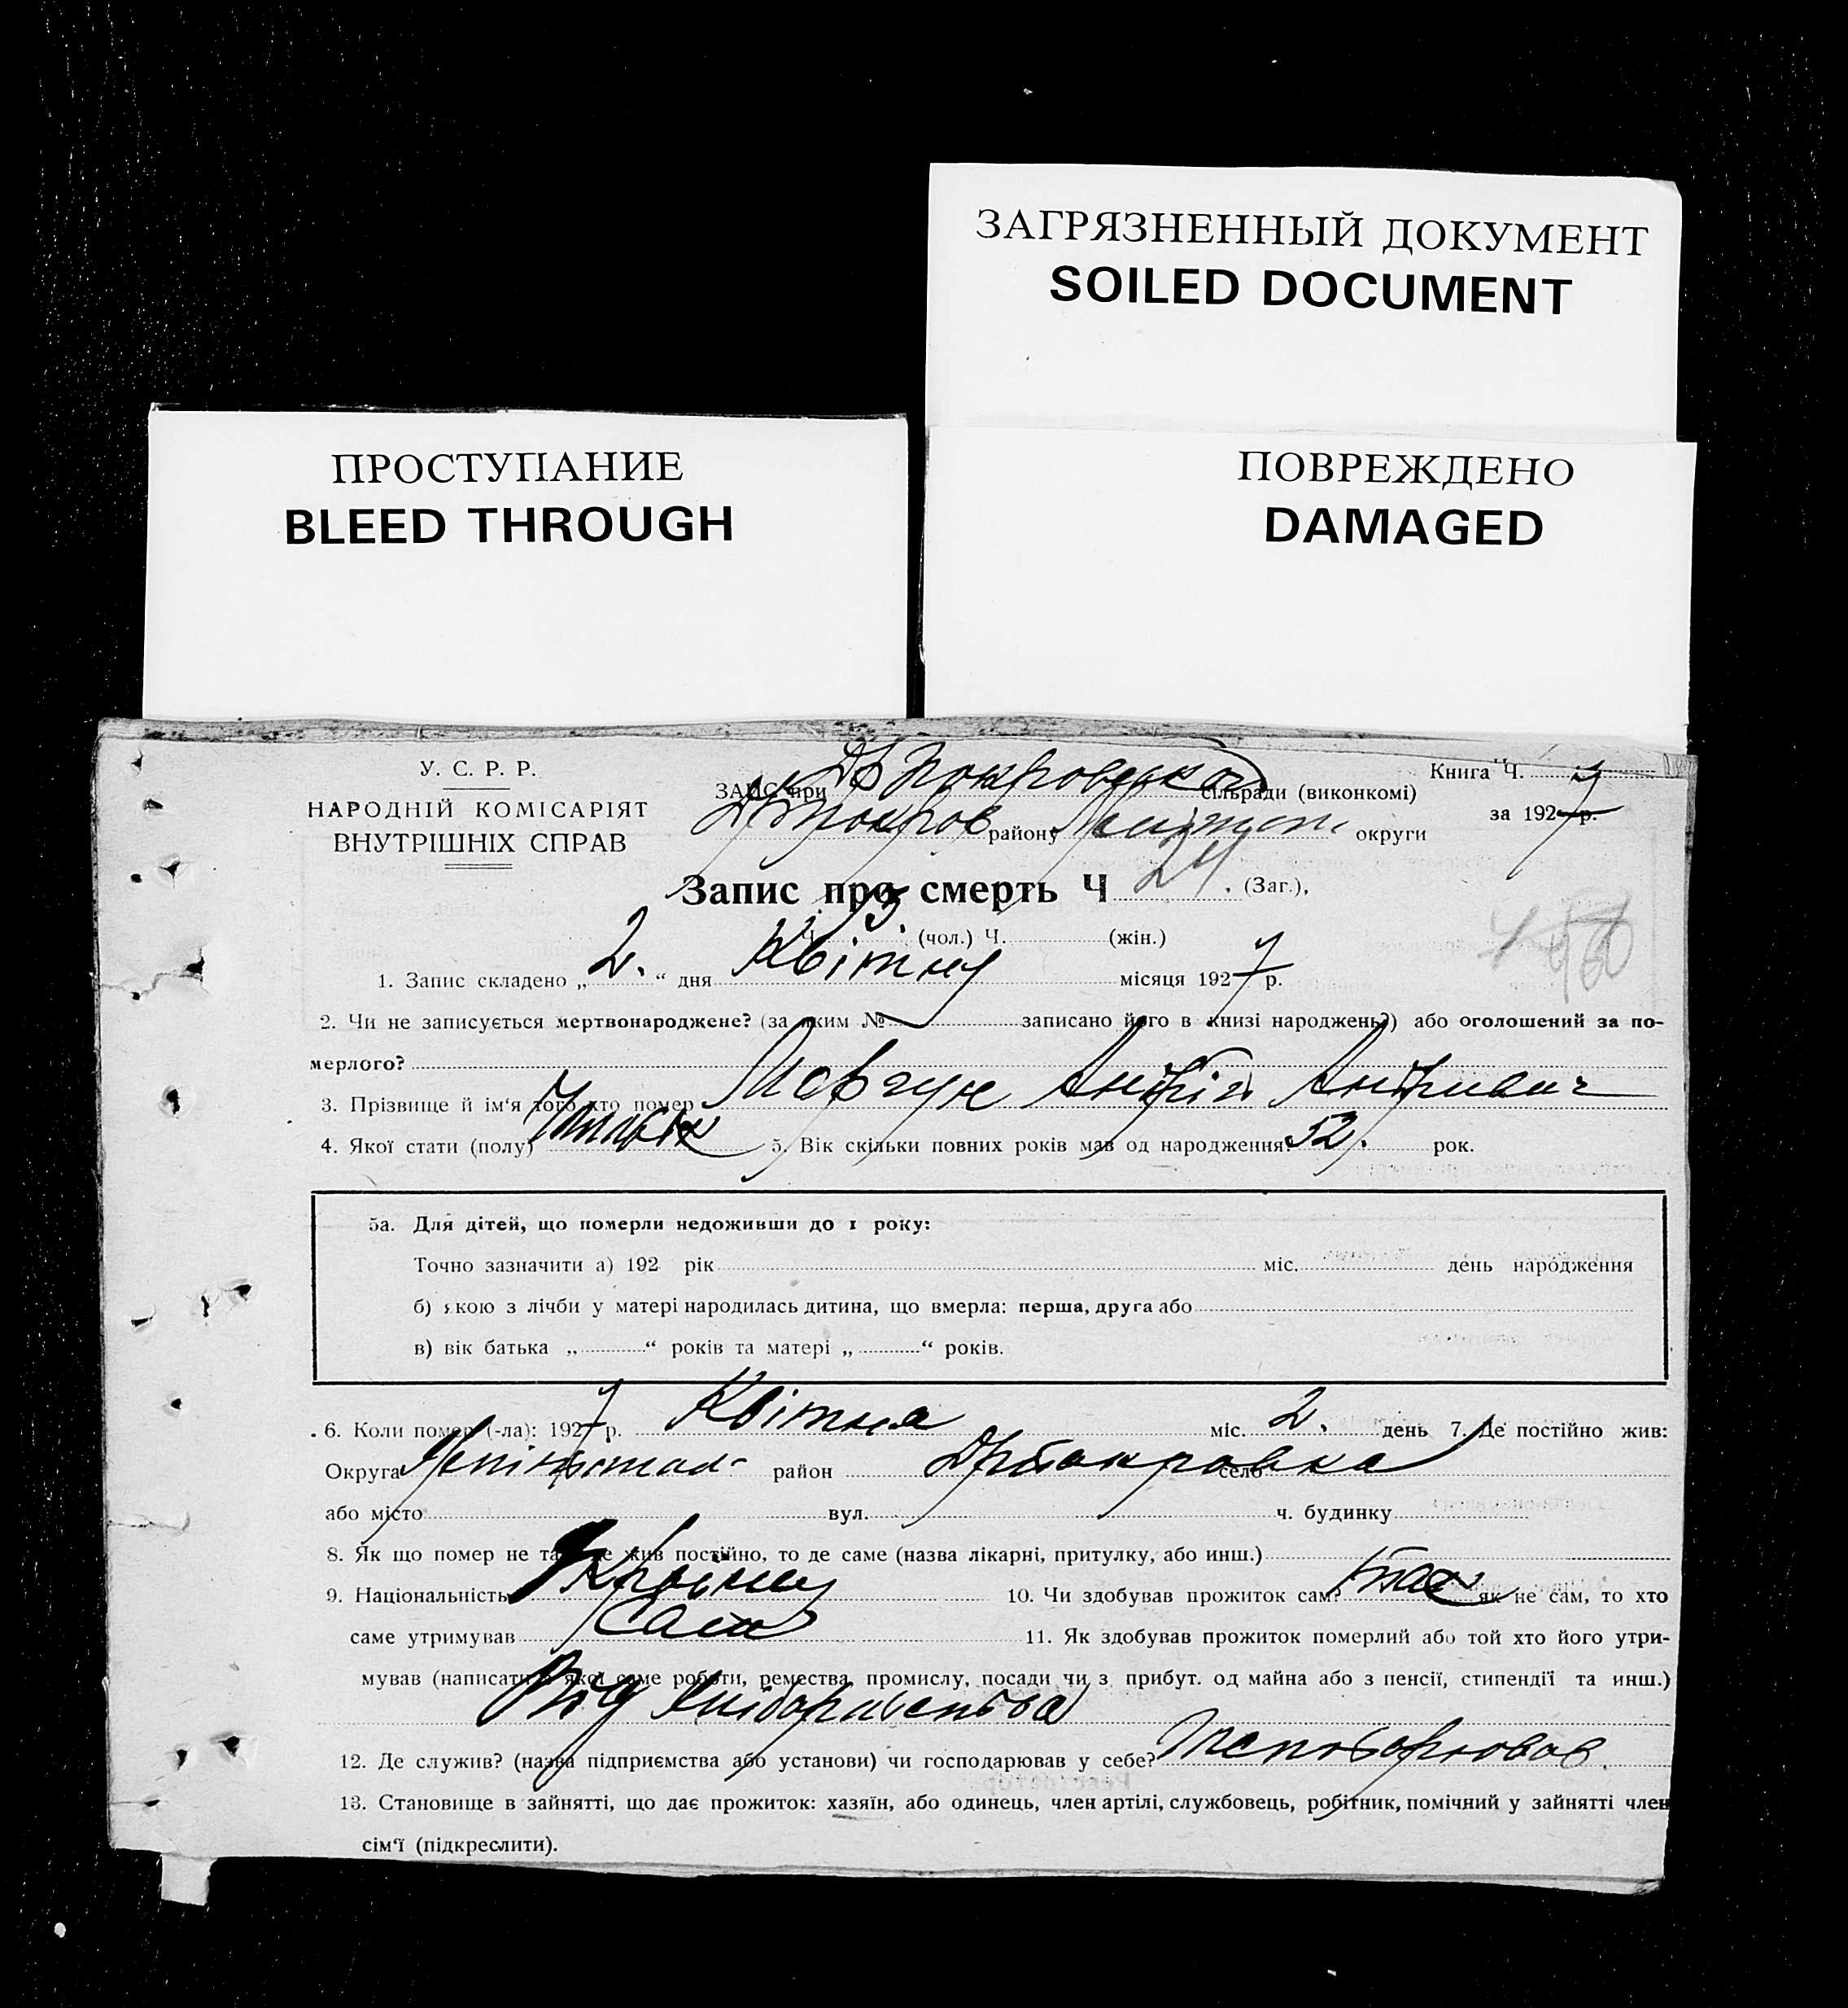 ЗАГРЯЗНЕННЫЙ ДОКУМЕНТ
SOILED DOCUMENT
ПРОСТУПАНИЕ
BLEED THROUGH
ПОВРЕЖДЕНО
DAMAGED
У. С. Р. Р.
НАРОДНІЙ КОМІСАРІЯТ
ВНУТРІШНІХ СПРАВ
ЗАПИС при сільради (виконкомі)
району округи
Книга Ч.
за 1927 р.
Запис про смерть Ч 24. (Заг.),
Ч. 13. (чол.) Ч. (жін.)
1. Запис складено „2.“ дня Квітня місяця 1927 р.
2. Чи не записується мертвонароджене? (за яким № записано його в книзі народжень?) або оголошений за по-
мерлого?
3. Прізвище й ім'я того хто помер Шевчук Андрій Андриевич
4. Якої стати (полу) 5. Вік скільки повних років мав од народження? 52. рок.
5а. Для дітей, що померли недоживши до 1 року:
Точно зазначити а) 192 рік міс. день народження
б) якою з лічби у матері народилась дитина, що вмерла: перша, друга або
в) вік батька „ “ років та матері „ “ років.
6. Коли помер (-ла): 1927 р. Квітня міс. 2. день 7. Де постійно жив:
Округа район село
або місто вул. ч. будинку
8. Як що помер не там де жив постійно, то де саме (назва лікарні, притулку, або инш.)
9. Національність 10. Чи здобував прожиток сам? так як не сам, то хто
саме утримував Сам 11. Як здобував прожиток померлий або той хто його утри-
мував (написати з якої саме роботи, ремества, промислу, посади чи з прибут. од майна або з пенсії, стипендії та инш.)
Від хліборобства
12. Де служив? (назва підприємства або установи) чи господарював у себе?
13. Становище в зайнятті, що дає прожиток: хазяїн, або одинець, член артілі, службовець, робітник, помічний у зайнятті член
сім'ї (підкреслити).